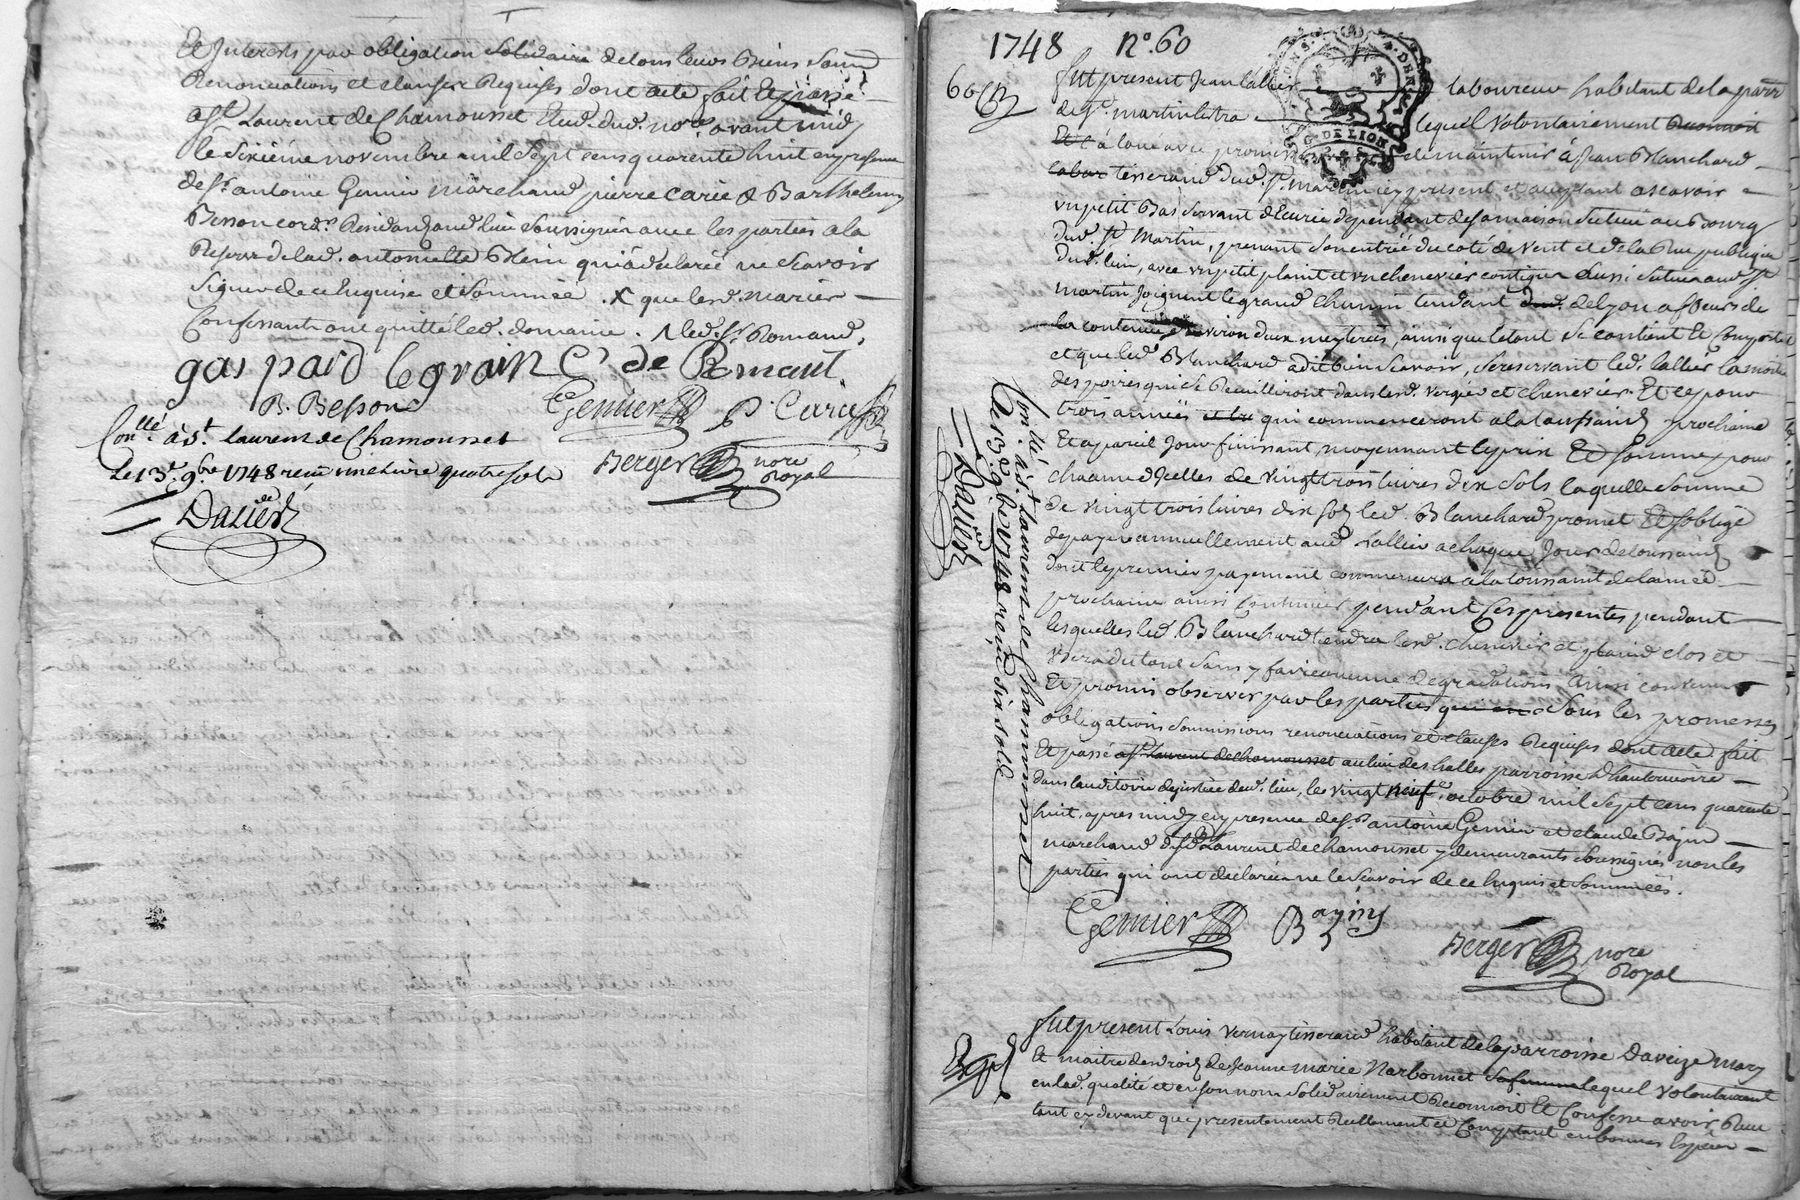 Et Interests par obligation Solidaire de tous leurs Biens Soumd
Renonciations et clauses Requises dont acte fait Et passé
a St. Laurent de Chamousset Etude dud. nore avant midy
le Sixiéme novembre mil Sept cens quarente huit en presence
de Sr. antoine Gemier marchand pierre Carié & Barthelemy
Besson cordr. Residants aud lieu Soussignés avec les parties a la
Reserve de lad. antoinette Blein qui a declarée ne Scavoir
Signer de ce Enquise et Sommée . X que lesd. mariés
Confessant ont quitté led. domaine . led. Sr. Romand.
gaspard legrain C. de Romand
B. Besson Gemier P. Carié
Conllé. à St. laurent de Chamousset
Le 13e. 9bre 1748 reçu une livre quatre sols
Berger nore
Royal
Dauest
1748 No. 60
60
fut present Jean lallier laboureur habitant de la parr
de St. martin lestra lequel Volontairement Reconnoit
Et a loué avec promesse de maintenir à Jean Blanchard
labou tisserand dud. St. Martin icy present et acceptant a scavoir
un petit Bas Servant d'Ecurie dependant de sa maison Scituée au Bourg
dud. St. Martin, prenant Son entrée du coté de vent et de la Rue publique
dud. lieu, avec un petit plant et un chenevier contigus aussi Scitués aud St.
martin Joignant le grand chemin tendant dud. de lyon a feurs de
la contenue d'environ deux meyterées, ainsi que le tout Se contient Et Comporte
et que led. Blanchard a dit bien Scavoir, Se reservant led. lallier la moitié
des poires qui Se Recuilliront dans lesd. verger et chenevier. Et ce pour
trois années et les qui commenceront a la toussaint prochaine
Et a pareil Jour finissant, moyennant le prix Et Somme pour
chacune d'Icelles de vingt trois livres dix Sols laquelle Somme
de vingt trois livres dix Sols led. Blanchard promet Et S'oblige
de payer annuellement aud. Lallier a chaque Jour de toussaint
dont le premier payement commencera a la toussaint de l'année
prochaine ainsi continuer pendant Ces presentes pendant
lesquelles led. Blanchard tiendra lesd. chenevier et plant clos et
usera du tout Sans y faire aucune degradations ainsi convenu
Et promis observer par les parties qui en Sous les promesses
obligations soumissions renonciations et clauses Requises dont acte fait
Et passé a St. Laurent de chamousset au lieu des halles parroisse d'hauterivoire
dans l'auditoire de justice dud. lieu, le vingt neuf. octobre mil Sept cens quarente
huit, apres midy en presence de Sr. antoine Gemier et claude Bajin
marchand de St. Laurent de chamousset y demeurants Soussignés non les
parties qui ont declarées ne le Scavoir de ce Enquis et Sommées.
Conllé. à St. laurent de Chamousset
Le 13e. 9bre 1748 reçu six sols
Dauest
Gemier Bayin
Berger nore
Royal
Exp
fut present Louis vernay tisserand habitant de la parroisse d'aveize mary
Et maitre des droits de Jeanne marie Narbonnet sa femme lequel volontairement
en lad. qualité et en son nom Solidairement Reconnoit Et Confesse avoir Reçu
tant cy devant que presentement Reellement et Comptant en bonnes Especes